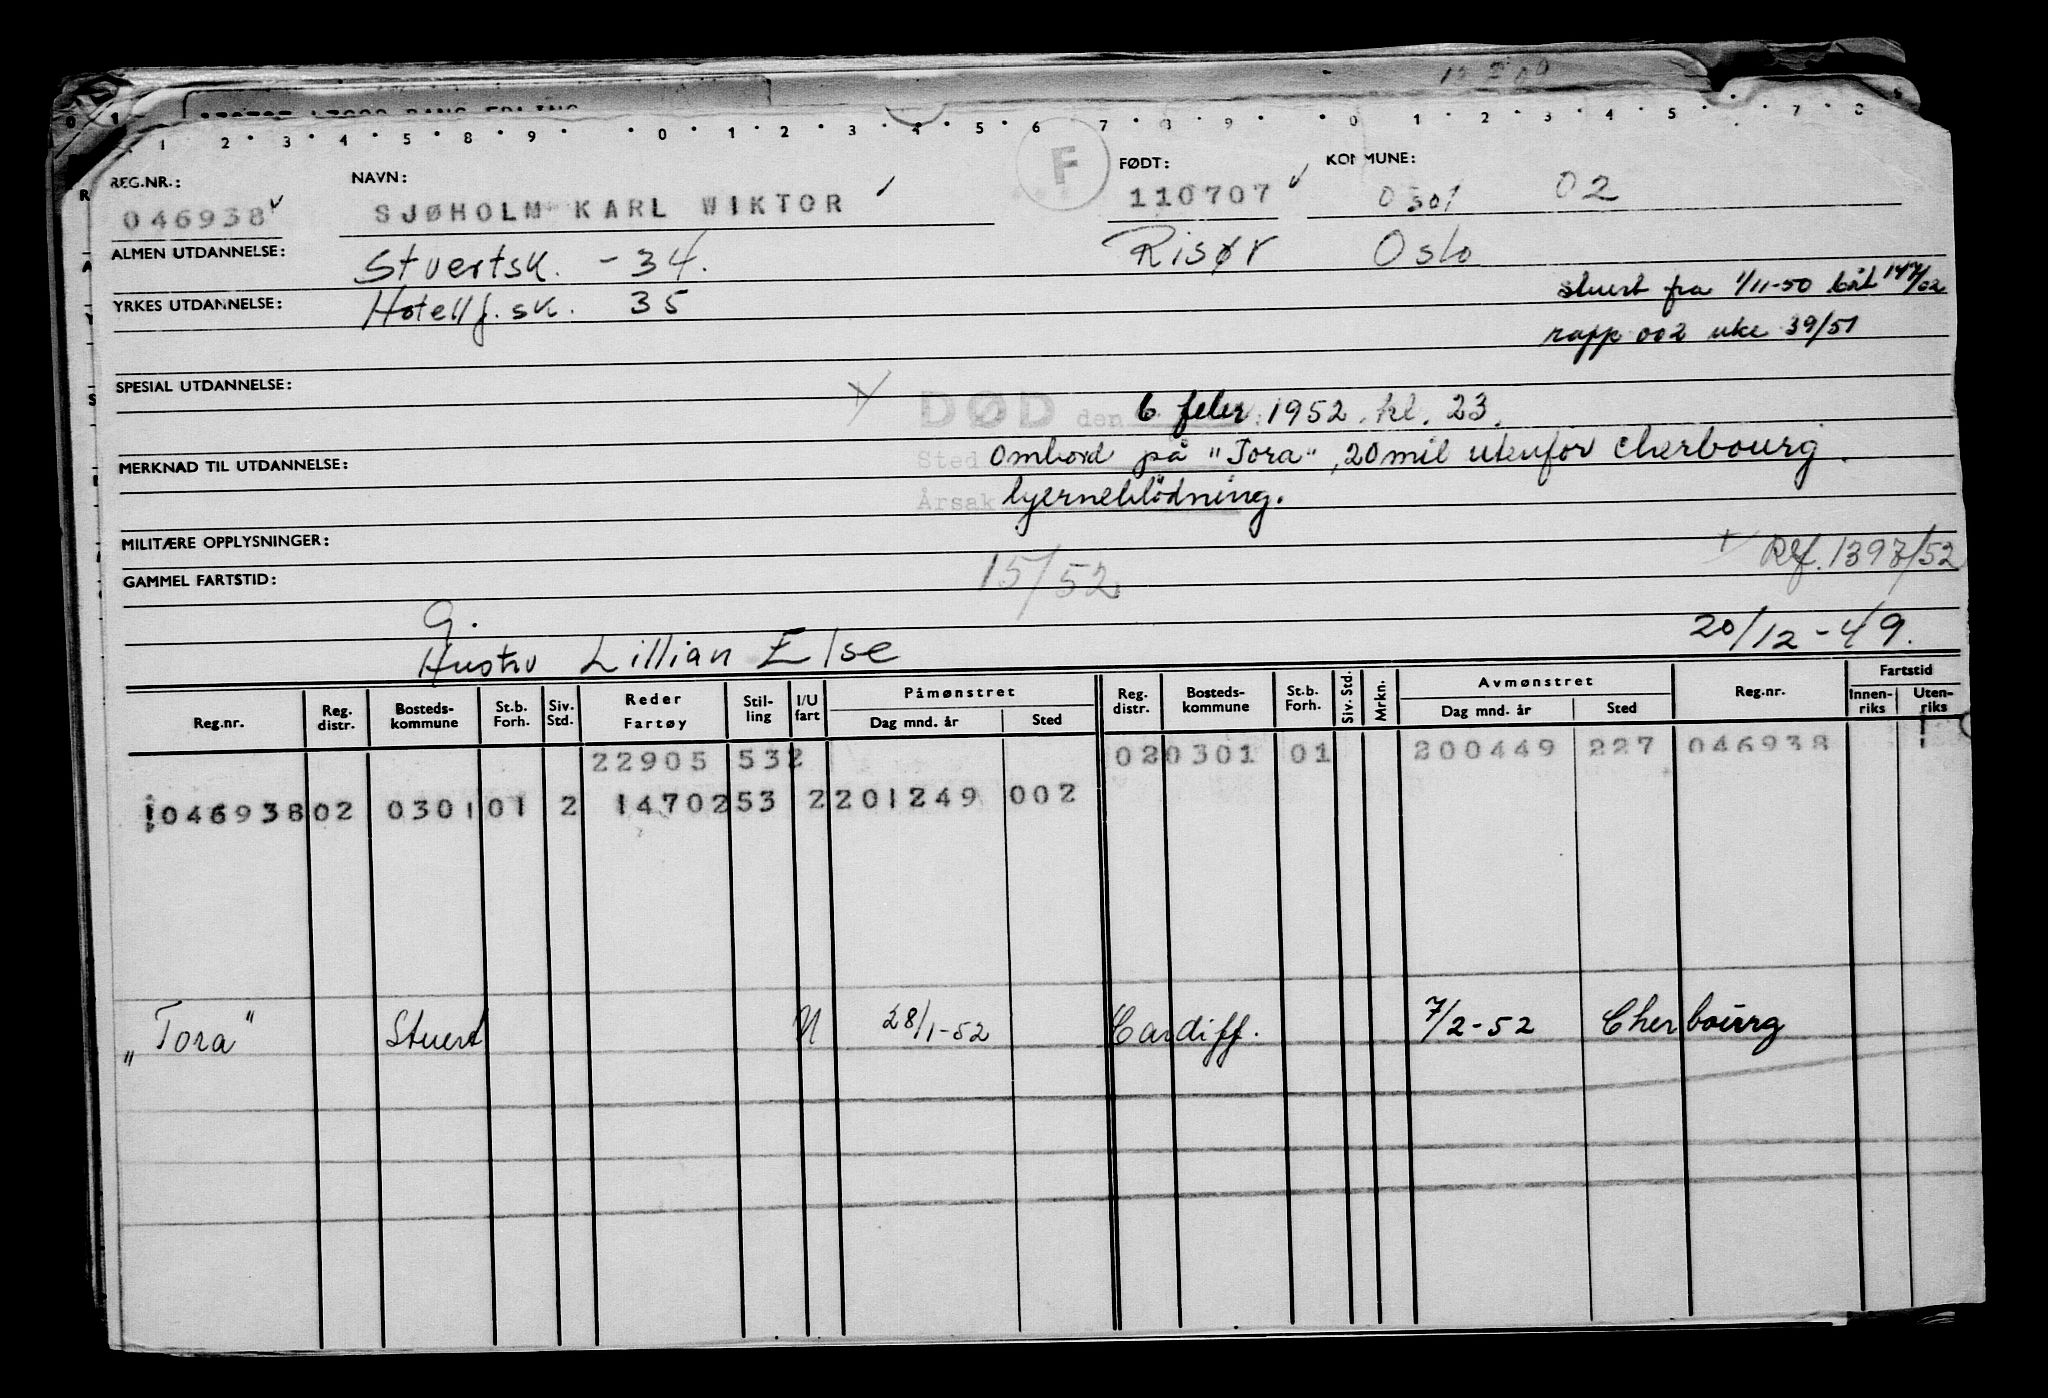 1 2 3 4 5 8 9 0 1 2 3 4 5 6 7 8 9 0 1 2 3 4 5 7 8
F
REG.NR.: NAVN: FØDT: KOMMUNE:
046938 SJØHOLM KARL WIKTOR 110707 0301 02
ALMEN UTDANNELSE: Stuertsk. - 34. Risør Oslo
YRKES UTDANNELSE: Hotellf.sk. 35 stuert fra 1/11-50 båt 147/02
rapp 002 uke 39/51
SPESIAL UTDANNELSE:
DØD den 6 febr. 1952. kl. 23.
MERKNAD TIL UTDANNELSE: Sted Ombord på "Tora", 20 mil utenfor Cherbourg.
Årsak hjerneblödning.
MILITÆRE OPPLYSNINGER: Ref. 1397/52
GAMMEL FARTSTID: 15/52
G.
Hustru Lillian Else 20/12-49.
Reg.nr. Reg. distr. Bosteds-kommune St.b. Forh. Siv. Std. Reder Fartøy Stil-ling I/U fart Påmønstret Dag mnd. år Sted Reg. distr. Bosteds-kommune St.b. Forh. Siv. Std. Mrkn. Avmønstret Dag mnd. år Sted Reg.nr. Fartstid Innen-riks Uten-riks
22905 532 020301 01 200449 227 046938
!04693802 030101 2 1470253 2201249 002
"Tora" Stuert U 28/1-52 Cardiff. 7/2-52 Cherbourg